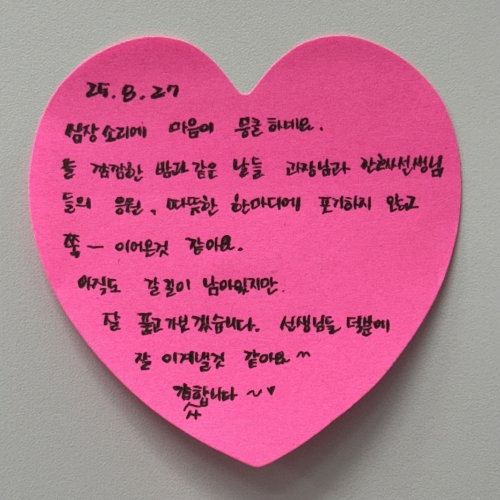 25.8.27
심장소리에 마음이 뭉클하네요.
늘 캄캄한 밤과 같은 날들 과장님과 간호사선생님
들의 응원, 따뜻한 한마디에 포기하지 않고
쭉 ㅡ 이어온것 같아요.
아직도 갈길이 남아있지만.
잘 품고가보겠습니다. 선생님들 덕분에
잘 이겨낼것 같아요^^
감사합니다 ~♥